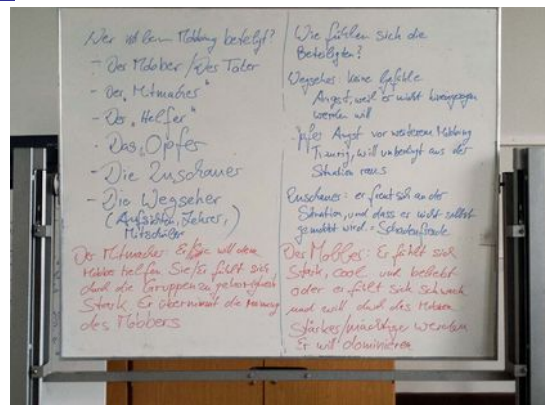 Wer ist beim Mobbing beteiligt?
- Der Mobber / Der Täter
- Der "Mitmacher"
- Der "Helfer"
- Das "Opfer
- Die Zuschauer
- Die Wegseher
(Aufsichten, Lehrer,)
Mitschüler
Der Mitmacher: Er/Sie will dem
Mobber helfen Sie/Er fühlt sich
durch die Gruppenzugehörigkeit
Stark. Er übernimmt die Meinung
des Mobbers
Wie fühlen sich die
Beteiligten?
Wegseher: keine Gefühle
Angst, weil er nicht hineingezogen
werden will
Opfer Angst vor weiterem Mobbing
Traurig, will unbedingt aus der
Situation raus
Zuschauer: er freut sich an der
Situation, und dass es nicht selbst
gemobbt wird. = Schadenfreude
Der Mobber: Er fühlt sich
Stark, cool und beliebt
oder er fühlt sich schwach
und will durch das Mobben
Stärker/mächtiger werden
Er will dominieren